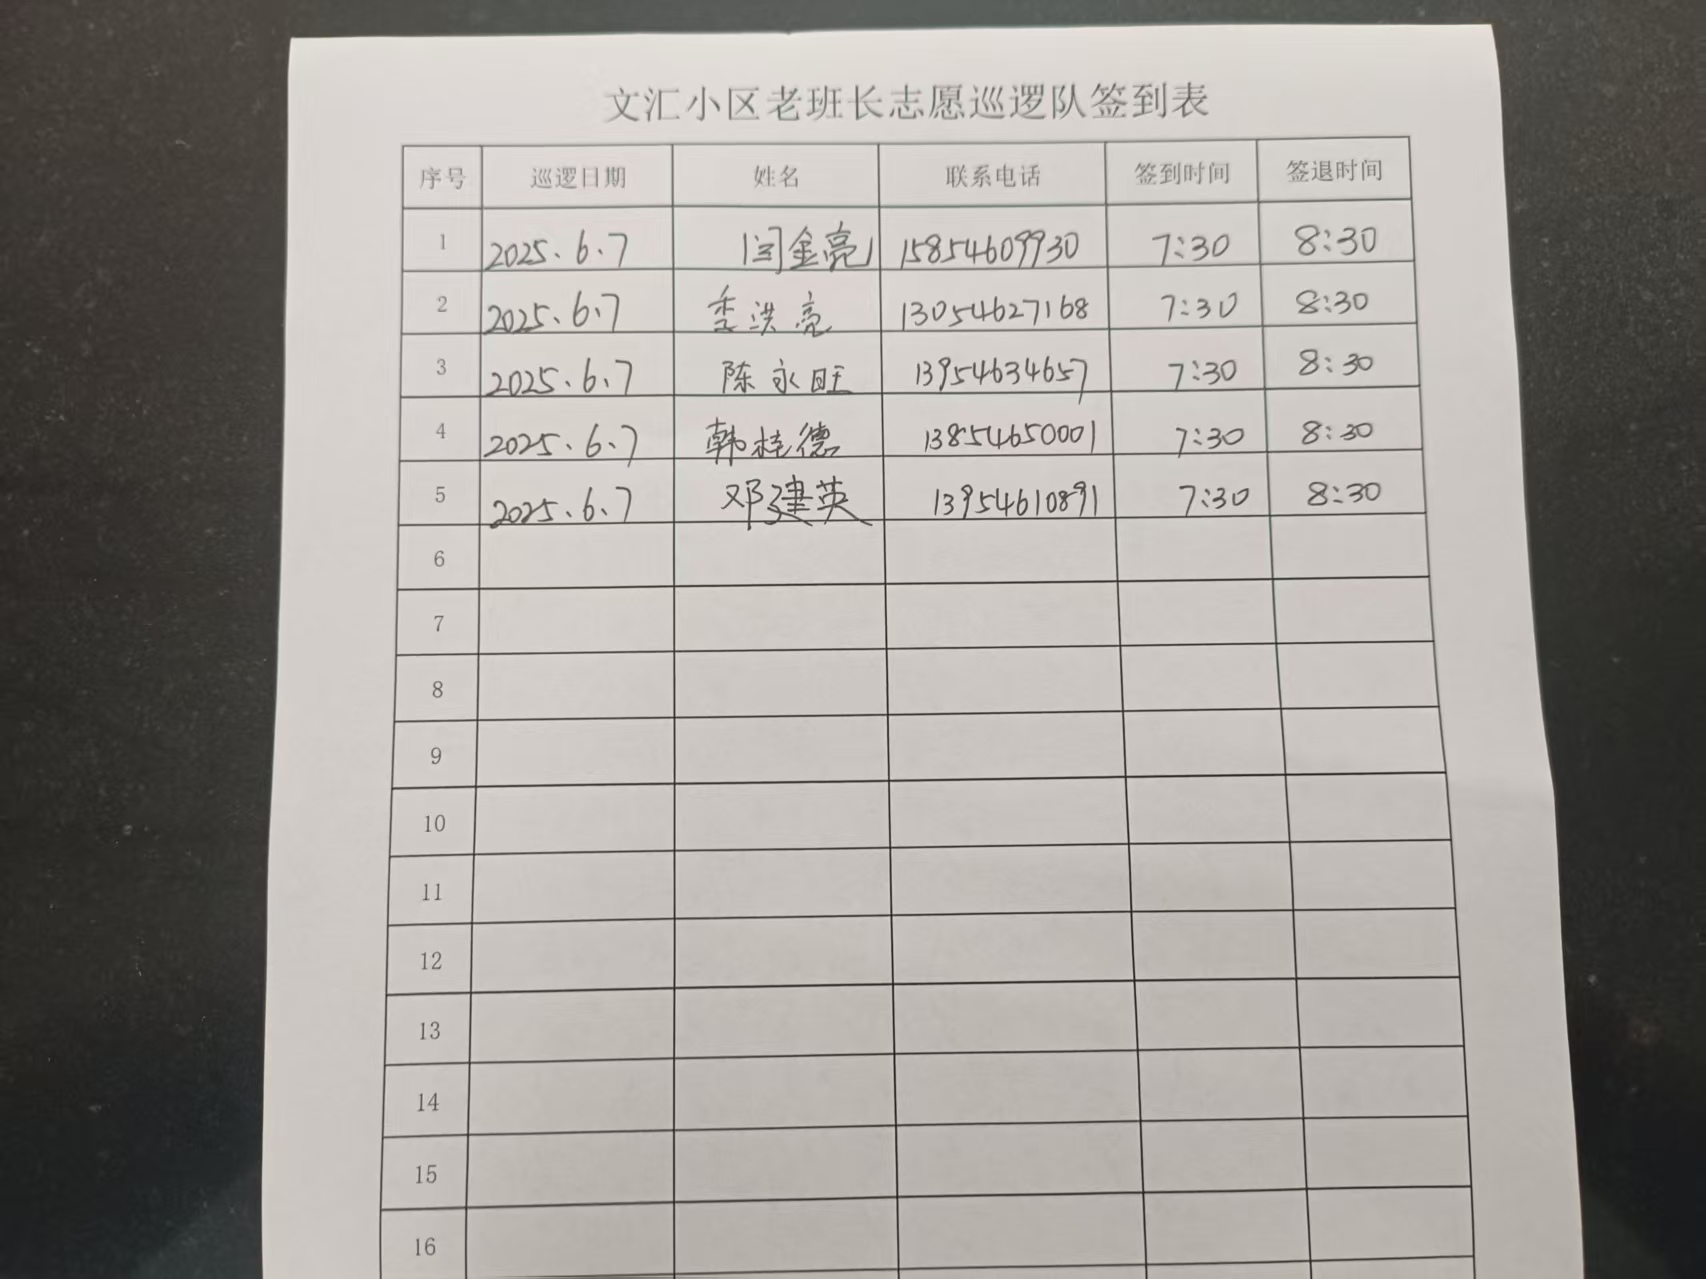 文汇小区老班长志愿巡逻队签到表
序号 巡逻日期 姓名 联系电话 签到时间 签退时间
1 2025.6.7 闫金亮 15854609930 7:30 8:30
2 2025.6.7 季洪亮 13054627168 7:30 8:30
3 2025.6.7 陈永旺 13954634657 7:30 8:30
4 2025.6.7 韩桂德 13854650001 7:30 8:30
5 2025.6.7 邓建英 13954610891 7:30 8:30
6
7
8
9
10
11
12
13
14
15
16